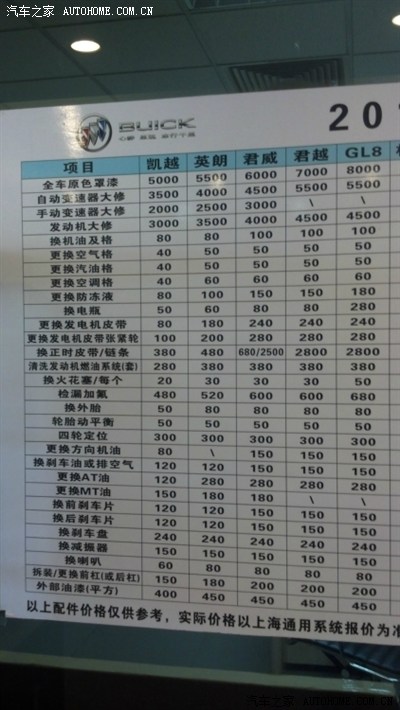 汽车之家 AUTOHOME.COM.CN
BUICK 201
项目 凯越 英朗 君威 君越 GL8
全车原色罩漆 5000 5500 6000 7000 8000
自动变速器大修 3500 4000 4500 5500 5500
手动变速器大修 2000 2500 3000 \ \
发动机大修 3000 3500 4000 4500 4500
换机油及格 80 80 100 100 100
更换空气格 40 50 50 50 50
更换汽油格 40 50 50 50 50
更换空调格 40 60 60 60 60
更换防冻液 80 100 150 150 180
换电瓶 50 60 80 80 280
更换发电机皮带 80 180 240 240 240
更换发电机皮带张紧轮 100 200 280 280 280
换正时皮带/链条 380 480 680/2500 2800 2800
清洗发动机燃油系统(套) 280 380 380 380 380
换火花塞/每个 20 30 30 30 50
检漏加氟 480 520 600 600 680
换外胎 50 80 80 80 80
轮胎动平衡 50 50 50 50 50
四轮定位 300 300 300 300 300
更换方向机油 80 \ 150 150 150
换刹车油或排空气 120 120 150 150 150
更换AT油 120 280 280 280 280
更换MT油 150 180 180 \ \
换前刹车片 120 120 150 150 150
换后刹车片 120 120 150 150 150
换刹车盘 240 240 240 240 240
换减振器 150 150 150 150 150
换喇叭 60 80 80 80 80
拆装/更换前杠(或后杠) 150 180 200 200 200
外部油漆(平方) 400 450 450 450 450
以上配件价格仅供参考，实际价格以上海通用系统报价为准
汽车之家 AUTOHOME.COM.CN